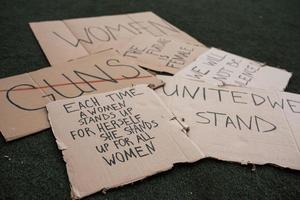 WOMEN
THE
FUTURE IS
FEMALE
WE WILL
NOT BE
SILENCED
GUNS
UNITED WE
STAND
EACH TIME
A WOMEN
STANDS UP
FOR HERSELF
SHE STANDS
UP FOR ALL
WOMEN